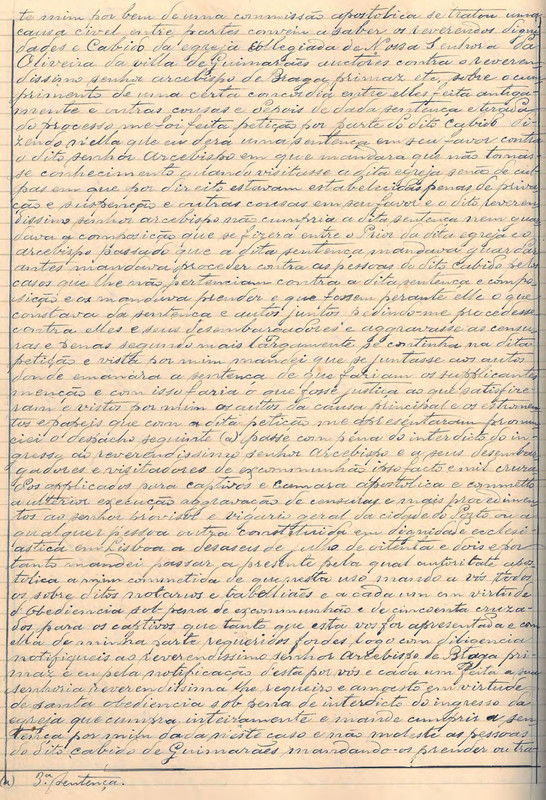 te mim por bem de uma commissão apostolica se tratou uma
causa civel entre partes convem a saber os reverendos digni
dades e Cabido da egreja collegiada de Nossa Senhora da
Oliveira da villa de Guimarães auctores contra o reveren
dissimo senhor arcebispo de Braga primaz etc. sobre o cum
primento de uma certa concordia entre elles feita antiga
mente e outras cousas e depois de dada sentença e
do processo me foi feita petição por parte do dito cabido di
zendo n'ella que eu dera uma sentença em seu favor contra
o dito senhor arcebispo em que mandara que não tomas
se conhecimento quando visitasse a dita egreja senão de cul
pas em que por direito estavam estabelecidas penas de priva
ção e suspenção e outras cousas em seu favor e o dito reveren
dissimo senhor arcebispo não cumpria a dita sentença nem guar
dava a composição que se fizera entre o Prior da dita egreja e o
arcebispo passado que a dita sentença mandava guardar
antes mandava proceder contra as pessoas do dito cabido pelos
casos que lhe não pertenciam contra a dita sentença e compo
sição e os mandava prender e que fossem perante elle o que
constava da sentença e autos juntos pedindo-me procedesse
contra elles e seus desembargadores e aggravasse as censu
ras e penas segundo mais largamente se continha na dita
petição e vista por mim mandei que se juntasse aos autos
donde emanara a sentença de que faziam os supplicantes
menção e com isso faria o que fosse justiça ao que satisfize
ram e vistos por mim os autos da causa principal e os estromen
tos e papeis que com a dita petição me apresentaram pronun
ciei o despacho seguinte (a) passe com pena do interdicto do in
gresso ao reverendissimo senhor Arcebispo e a seus desembar
gadores e visitadores de excommunhão ipso facto e mil cruza
dos applicados para captivos e camara apostolica e commetto
a ulterior execução aggravação de censuras e mais procedimen
tos ao senhor provisor e vigario geral da cidade do Porto ou a
qualquer pessoa outra constituida em dignidade ecclesi
astica em Lisboa a desaseis de julho de oitenta e dois e por
tanto mandei passar a presente pela qual autoridade apos
tolica a mim commettida de que n'esta uso mando a vós todos
os sobreditos notarios e tabelliães e a cada um em virtude
d'obediencia sob pena de excommunhão e de cincoenta cruza
dos para os captivos que tanto que esta vos for apresentada e com
ella de minha parte requeridos fordes logo com diligencia
notifiqueis ao reverendissimo senhor arcebispo de Braga pri
maz e eu pela notificação d'esta por vós e cada um feita a sua
senhoria reverendissima lhe requeiro e amoesto em virtude
de santa obediencia sob pena de interdicto do ingresso da
egreja que cumpra inteiramente e mande cumprir a sen
tença por mim dada n'este caso e não moleste as pessoas
do dito cabido de Guimarães mandando-os prender ou tra
(a) 3.ª sentença.